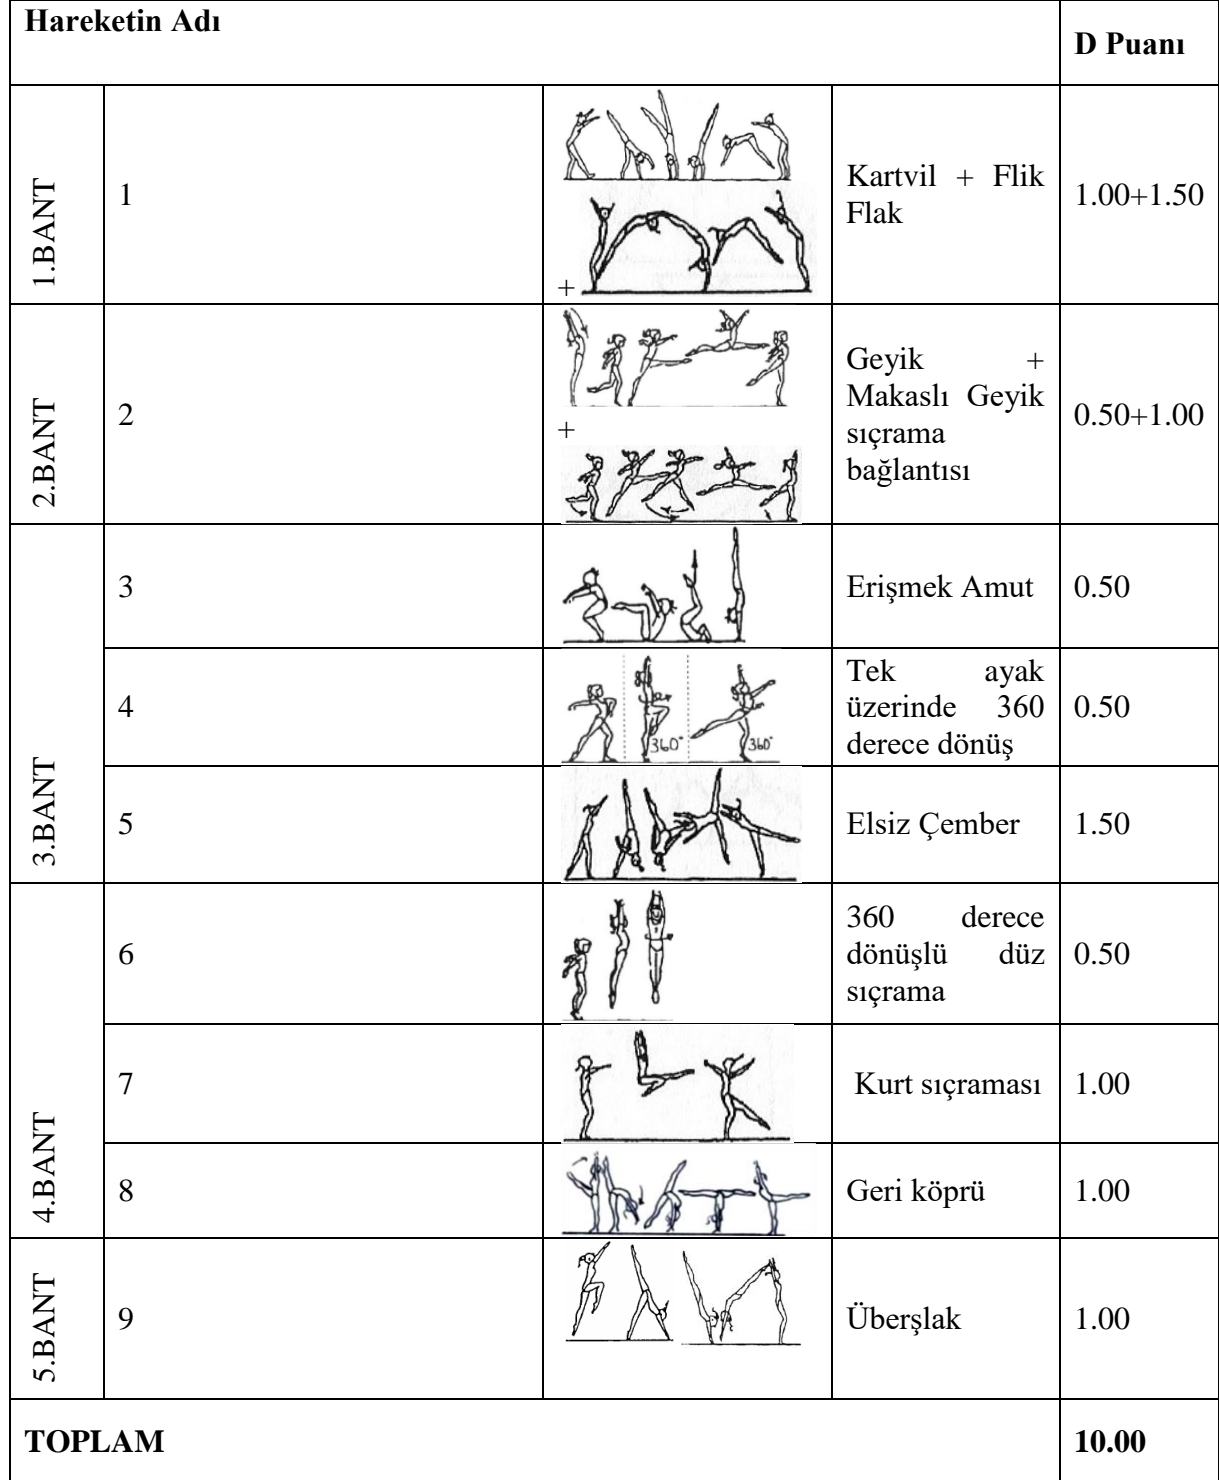 Hareketin Adı
D Puanı
1.BANT
1
+
Kartvil + Flik
Flak
1.00+1.50
2.BANT
2
+
Geyik +
Makaslı Geyik
sıçrama
bağlantısı
0.50+1.00
3.BANT
3
Erişmek Amut
0.50
4
360°
360°
Tek ayak
üzerinde 360
derece dönüş
0.50
5
Elsiz Çember
1.50
4.BANT
6
360 derece
dönüşlü düz
sıçrama
0.50
7
Kurt sıçraması
1.00
8
Geri köprü
1.00
5.BANT
9
Überşlak
1.00
TOPLAM
10.00